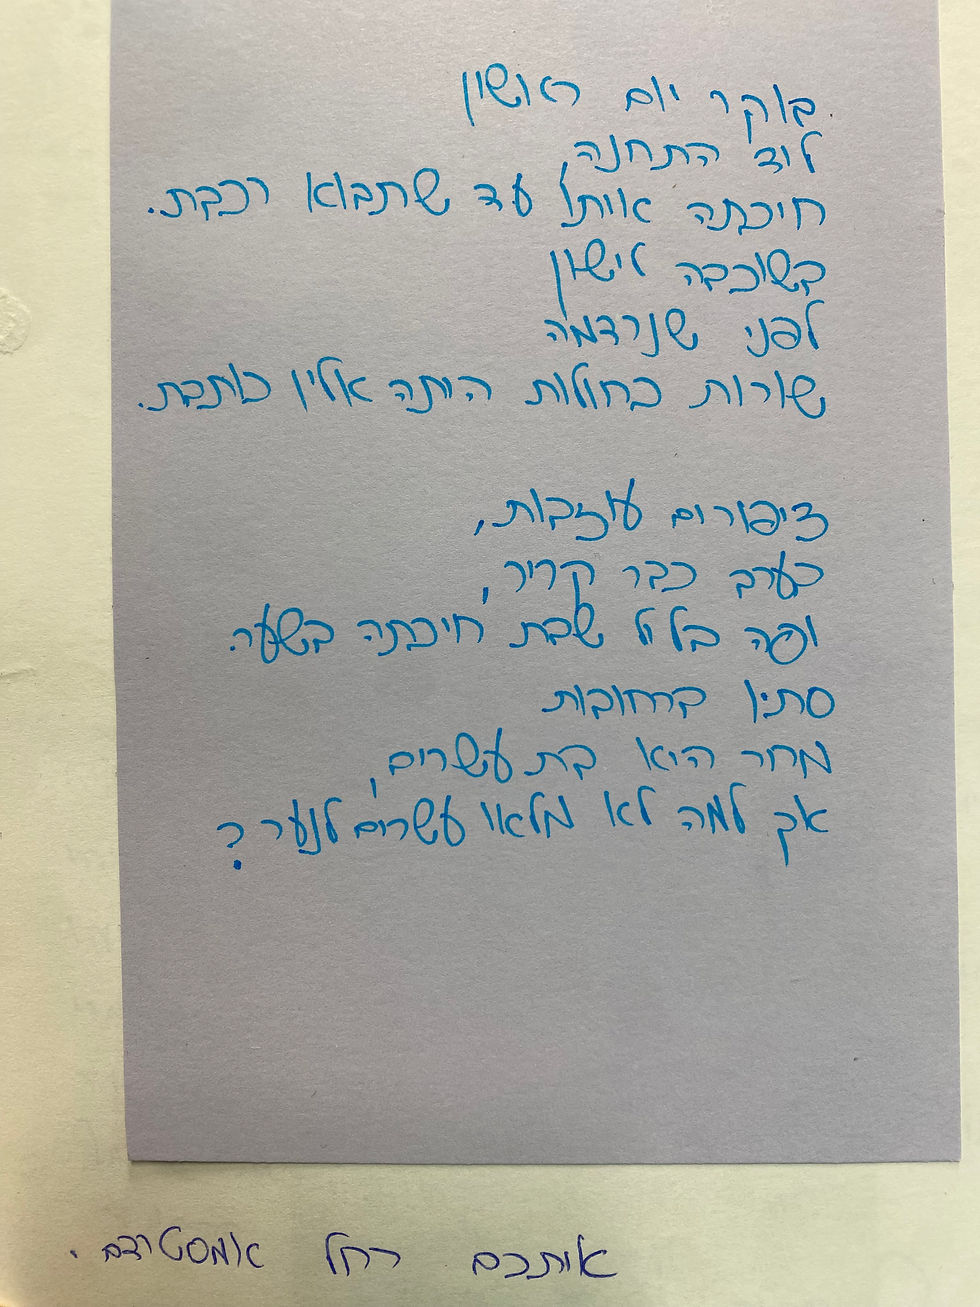 בוקר יום ראשון
לוד התחנה,
חיכתה איתו עד שתבוא רכבת.
בשוכבה לישון
לפני שנרדמה
שורות כחולות היתה אליו כותבת.
ציפורים עוזבות,
הערב כבר קריר,
ופה בליל שבת חיכתה בשער.
סתיו ברחובות
מחר היא בת עשרים,
אך למה לא מלאו עשרים לנער?
אותכם רחל אמסטרדם.